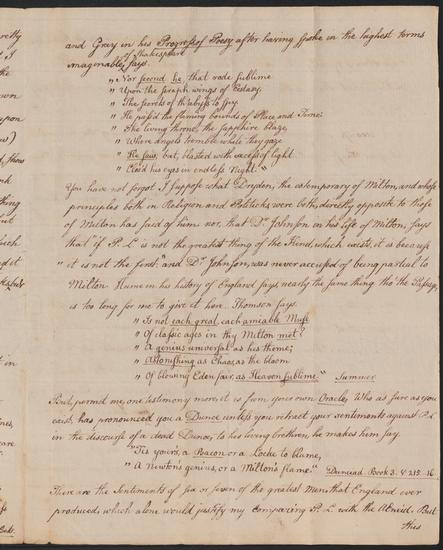 and Gray in his Progress of Poesy after having spoke in the highest terms
Shakespeare
imaginable, says.
" Nor second he, that rode sublime
" Upon the seraph wings of Ecstasy.
" The secrets of th'abyss to spy
" He pass'd the flaming bounds of Place and Time;
" The living throne, the sapphire blaze,
" Where angels tremble while they gaze
" He saw; but, blasted with excess of light
" Clos'd his eyes in endless Night."
You have not forgot I suppose what Dryden, the cotemporary of Milton, and whose
principles both in Religion and Politicks were both, directly opposite to those
of Milton has said of him nor, that Dr. Johnson in his life of Milton, says
that if P. L. is not the greatest thing of the Kind, which exists, it is because
" it is not the first." and Dr. Johnson, was never accused of being partial to
Milton Hume in his history of England says nearly the same thing tho' the Passage
is too long for me to give it here. Thomson says.
" Is not each great, each amiable Muse
" Of classic ages in thy Milton met?
" A genius universal as his theme;
" Astonishing as Chaos, as the bloom
" Of blowing Eden fair, as Heaven sublime." Summer
But permit me, one testimony more. it is from your own Oracle, Who as sure as you
exist, has pronounced you a Dunce unless you retract your sentiments against P. L.
in the discourse of a dead Dunce, to his living brethren he makes him say.
"'Tis yours, a Bacon or a Locke to blame,
" A Newton's genius, or a Milton's flame." Dunciad Book 3. v. 215. 16.
These are the Sentiments of six or seven of the greatest Men, that England ever
produced, which alone would justify my comparing P. L. with the Æneid. But
this